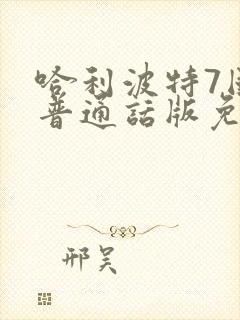 哈利波特7国
普通話版免
邢昊